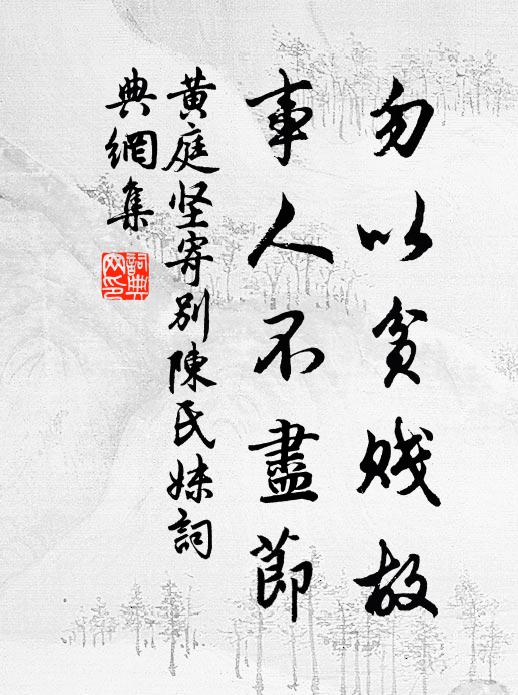 勿以貧賤故
事人不盡節
黃庭坚寄別陳氏妹詞
典網集
詞典
网印